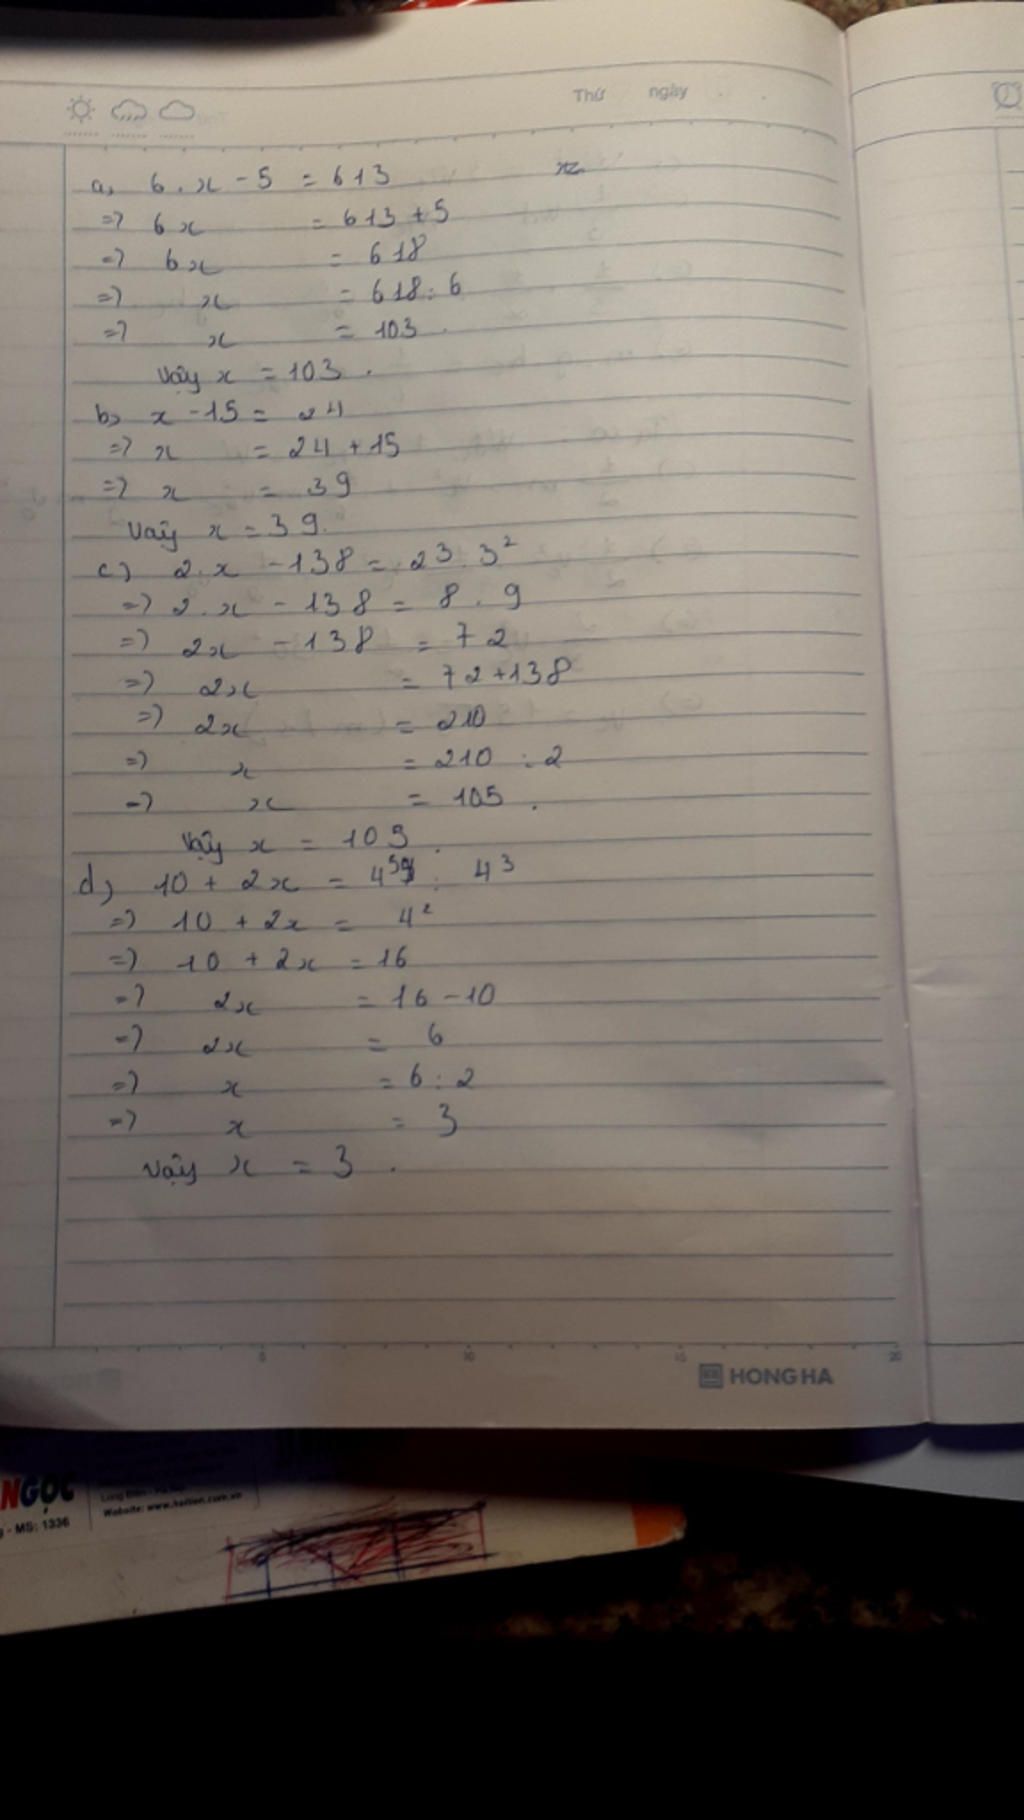 Thứ ngày
a, 6.x - 5 = 613
=> 6x = 613 + 5
=> 6x = 618
=> x = 618 : 6
=> x = 103.
Vậy x = 103.
b, x - 15 = 24
=> x = 24 + 15
=> x = 39
Vaỹ x = 39.
c) 2.x - 138 = 2³.3²
=> 2.x - 138 = 8.9
=> 2x - 138 = 72
=> 2x = 72 + 138
=> 2x = 210
=> x = 210 : 2
=> x = 105.
Vậy x = 105.
d, 10 + 2x = 4⁵ : 4³
=> 10 + 2x = 4²
=> 10 + 2x = 16
=> 2x = 16 - 10
=> 2x = 6
=> x = 6 : 2
=> x = 3
Vậy x = 3.
5 10 15 20
HONG HA
NGỌC
g - MS: 1336
Website: www.haitien.com.vn